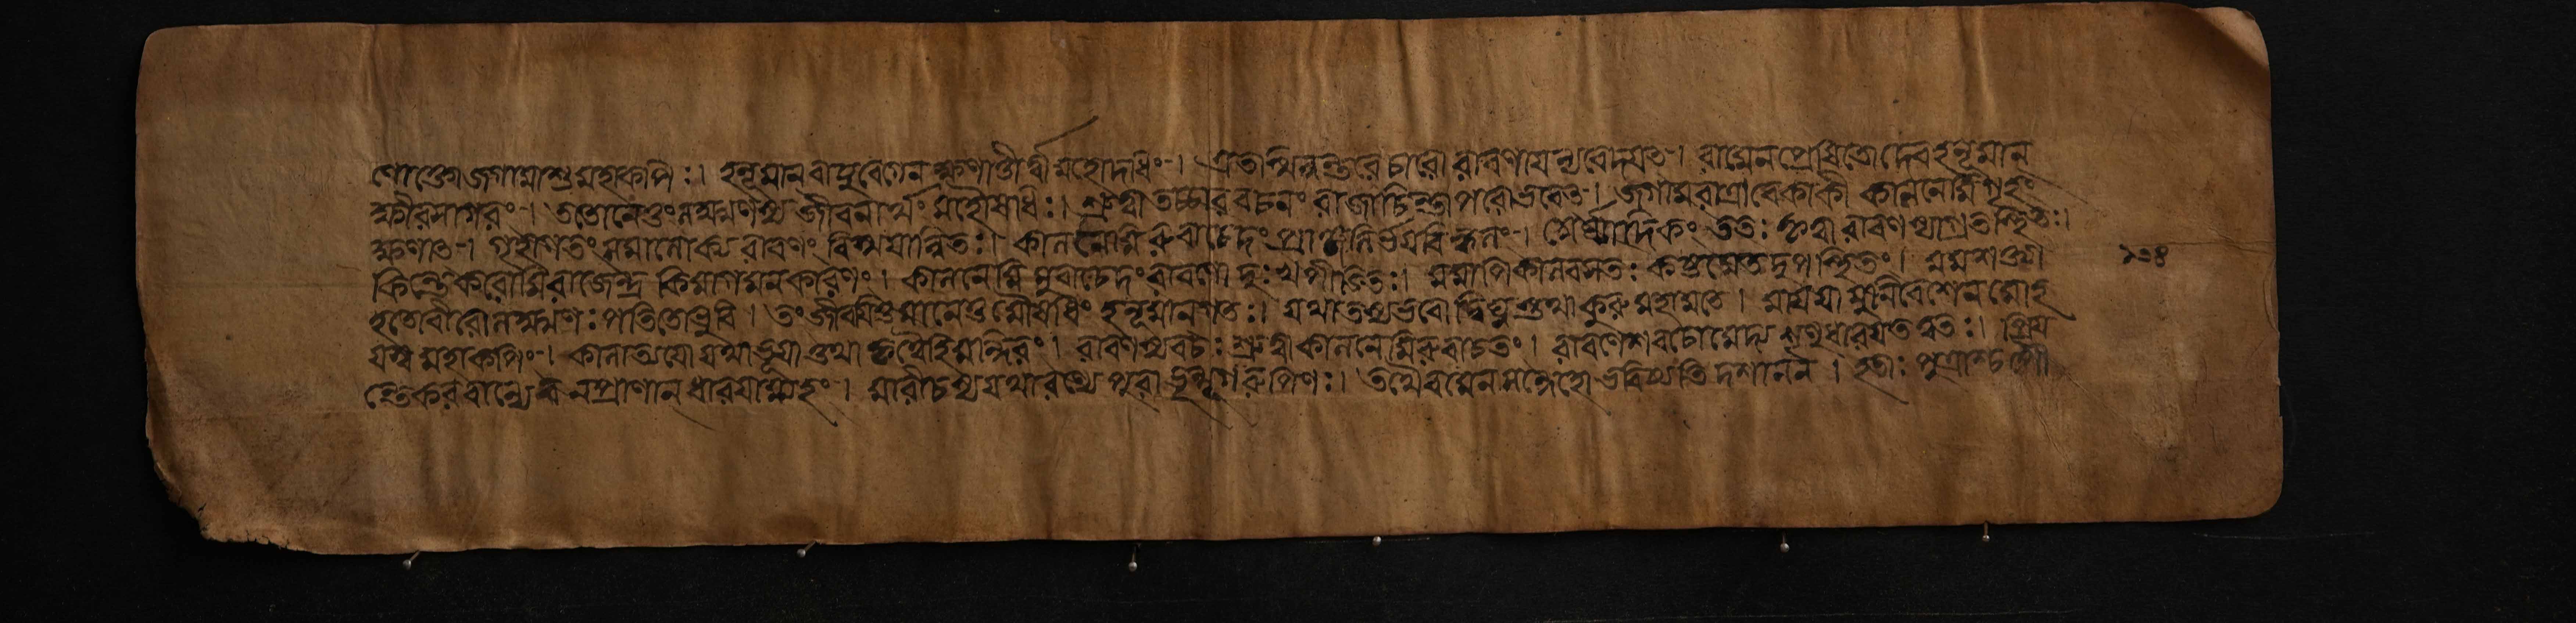 ণোক্তোজগামাশুমহাকপিঃ। হনূমান্ বায়ুবেগেন ক্ষণাত্তীর্ত্বামহোদধিং। এতস্মিন্নন্তরে চারো রাবণায়ন্যবেদয়ত্। রামেনপ্রেষিতোদেবহনূমান্
ক্ষীরসাগরং। ততোনেতুংলক্ষ্মণস্য জীবনার্থং মহৌষধিঃ। শ্রুত্বাতচ্চারবচনং রাজাচিন্তাপরোঽভবত্। জগামরাত্রাবেকাকী কালনেমিগৃহং
ক্ষণাত্। গৃহাগতংসমালোক্য রাবণং বিস্ময়ান্বিতঃ। কালনেমিরুবাচেদং প্রাঞ্জলির্ভয়বিহ্বলং। অর্ঘ্যাদিকং ততঃ কৃত্বা রাবণস্যাগ্রতস্থিতঃ।
কিন্তেকরোমিরাজেন্দ্র কিমাগমনকারণং। কালনেমিমুবাচেদং রাবণো দুঃখপীডিতঃ। মমাপিকালবসতঃ কষ্টমেতদুপস্থিতং। মমশক্ত্যা
হতোবীরোলক্ষ্মণঃপতিতোভুবি। তংজীবয়িতুমানেতুমৌষধিং হনূমান্গতঃ। যথাতস্যভবেদ্বিঘ্নস্তথাকুরুমহামতে। মায়য়ামুনিবেশেনমোহ
য়স্ব মহাকপিং। কালাত্যয়োয়থাভূয়াত্তথা কৃত্বৈহিমন্দিরং। রাবণস্যবচঃশ্রুত্বাকালনেমিরুবাচতং। রাবণেশবচোমেদ্য শৃণুধারয়তত্বতঃ। প্রিয়
ন্তেকরবান্যেব নপ্রাণান্ ধারয়াম্যহং। মারীচস্যয়থারণ্যে পুরাভূন্মৃগরূপিণঃ। তথৈবমেনসন্দেহো ভবিষ্যতি দশানন। হতাঃ পুত্রাশ্চপৌ